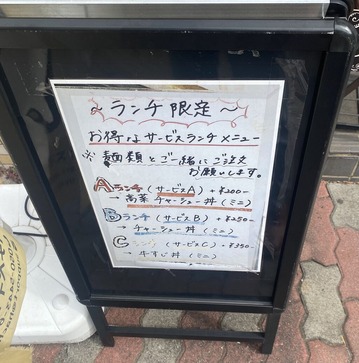 ～ランチ限定～
お得なサービスランチメニュー
※麺類とご一緒にご注文
お願いします。
Aランチ(サービスA) +¥200-
→高菜チャーシュー丼(ミニ)
Bランチ(サービスB) +¥250-
→チャーシュー丼(ミニ)
Cランチ(サービスC) +¥350-
→牛すじ丼(ミニ)